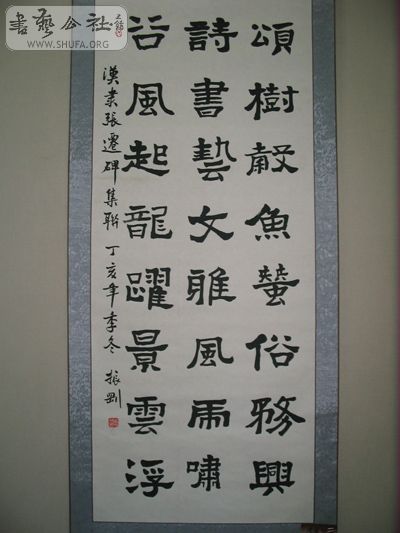 書藝公社
WWW.SHUFA.ORG
頌樹穀魚蠶俗務興
詩書藝文雅風雨嘯
谷風起龍躍景雲浮
漢隶張遷碑集聯 丁亥年季冬 振剛